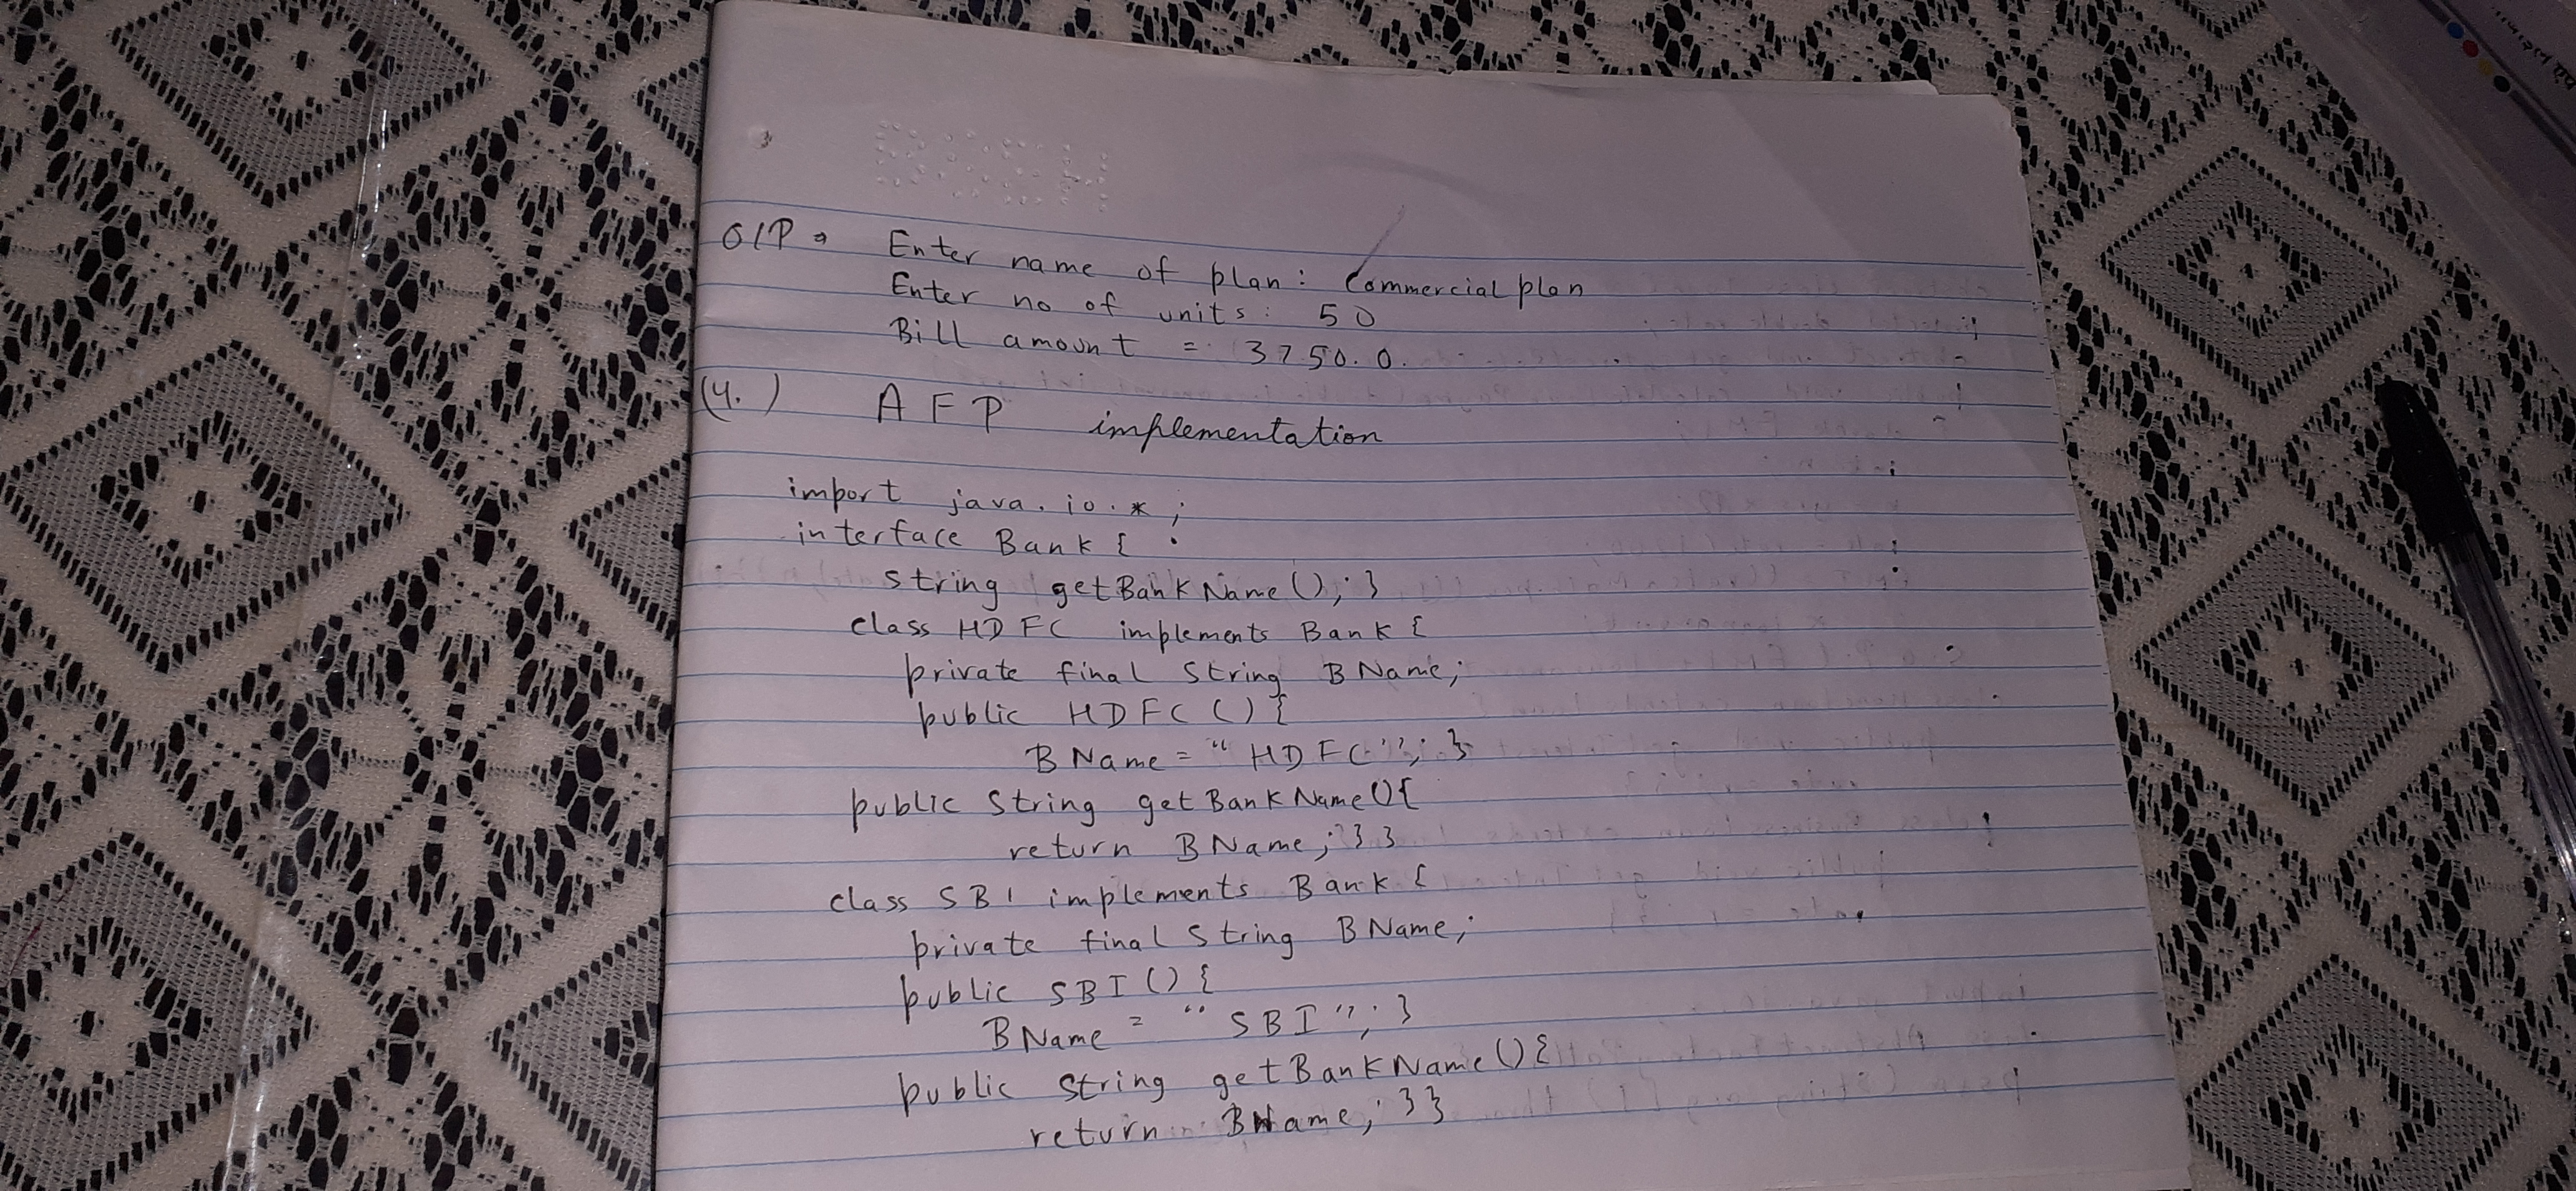 O/P ⇒ Enter name of plan: Commercialplan
Enter no of units: 50
Bill amount = 3750.0.
(4.) AFP implementation
import java.io.*;
interface Bank {
String getBankName(); }
class HDFC implements Bank {
private final String BName;
public HDFC () {
BName = "HDFC"; }
public String getBankName(){
return BName; } }
class SBI implements Bank {
private final String BName;
public SBI () {
BName = "SBI"; }
public String getBankName() {
return BName; } }